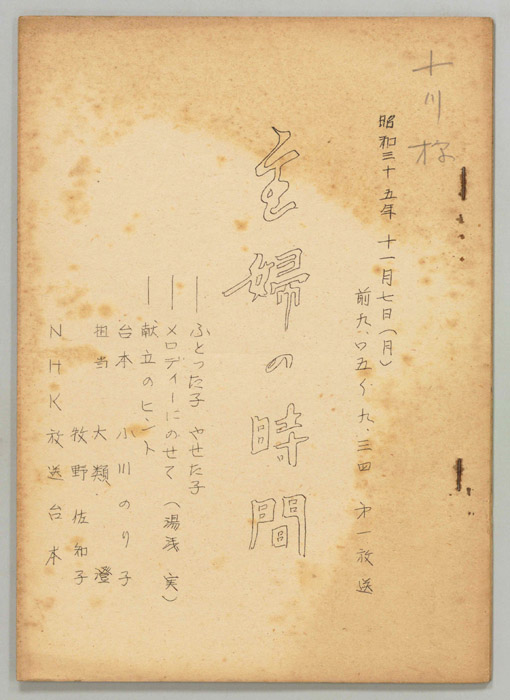 十川様
昭和三十五年 十一月七日(月)
前九.〇五〜九.三四 オ一放送
主婦の時間
― ふとった子 やせた子
― メロディーにのせて (湯浅 実)
― 献立のヒント
台本 小川のり子
担当 大類 澄
牧野佐和子
NHK放送台本